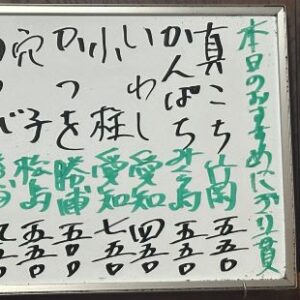 本日のおすすめにぎり貫
真こち 五五〇
かんぱち 五五〇
いわし 愛知 四五〇
小柱 愛知 七五〇
かつを 勝浦 五五〇
穴子 松島 五五〇